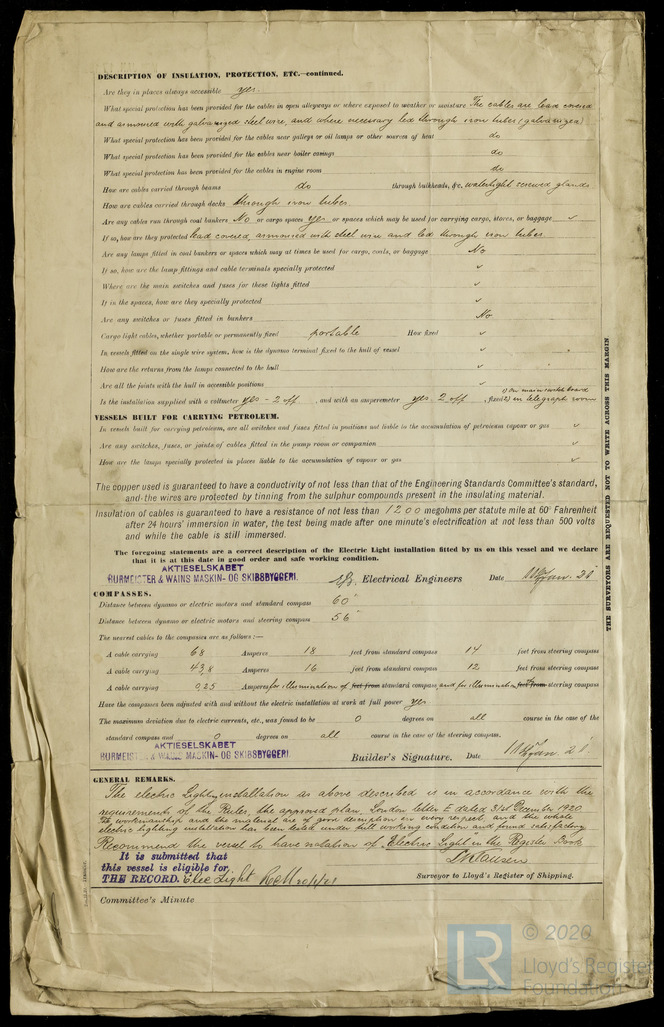 DESCRIPTION OF INSULATION, PROTECTION, ETC.—continued.
Are they in places always accessible yes.
What special protection has been provided for the cables in open alleyways or where exposed to weather or moisture The cables are lead covered
and armoured with galvanized steel wire, and where necessary led through iron tubes (galvanized)
What special protection has been provided for the cables near galleys or oil lamps or other sources of heat do
What special protection has been provided for the cables near boiler casings do
What special protection has been provided for the cables in engine room do
How are cables carried through beams do through bulkheads, &c. watertight screwed glands
How are cables carried through decks through iron tubes.
Are any cables run through coal bunkers No or cargo spaces yes or spaces which may be used for carrying cargo, stores, or baggage ✓
If so, how are they protected lead covered, armoured with steel wire and led through iron tubes
Are any lamps fitted in coal bunkers or spaces which may at times be used for cargo, coals, or baggage No
If so, how are the lamp fittings and cable terminals specially protected ✓
Where are the main switches and fuses for these lights fitted ✓
If in the spaces, how are they specially protected ✓
Are any switches or fuses fitted in bunkers No
Cargo light cables, whether portable or permanently fixed portable How fixed ✓
In vessels fitted on the single wire system, how is the dynamo terminal fixed to the hull of vessel ✓
How are the returns from the lamps connected to the hull ✓
Are all the joints with the hull in accessible positions ✓
1) on main switch board
Is the installation supplied with a voltmeter yes - 2 off, and with an amperemeter yes 2 off, fixed 2) in telegraph room
VESSELS BUILT FOR CARRYING PETROLEUM.
In vessels built for carrying petroleum, are all switches and fuses fitted in positions not liable to the accumulation of petroleum vapour or gas ✓
Are any switches, fuses, or joints of cables fitted in the pump room or companion ✓
How are the lamps specially protected in places liable to the accumulation of vapour or gas ✓
The copper used is guaranteed to have a conductivity of not less than that of the Engineering Standards Committee's standard,
and the wires are protected by tinning from the sulphur compounds present in the insulating material.
Insulation of cables is guaranteed to have a resistance of not less than 1200 megohms per statute mile at 60° Fahrenheit
after 24 hours' immersion in water, the test being made after one minute's electrification at not less than 500 volts
and while the cable is still immersed.
The foregoing statements are a correct description of the Electric Light installation fitted by us on this vessel and we declare
that it is at this date in good order and safe working condition.
AKTIESELSKABET
BURMEISTER & WAINS MASKIN- OG SKIBSBYGGERI. Electrical Engineers Date Jan. 21
COMPASSES.
Distance between dynamo or electric motors and standard compass 60'
Distance between dynamo or electric motors and steering compass 56'
The nearest cables to the compasses are as follows:—
A cable carrying 68 Amperes 18 feet from standard compass 14 feet from steering compass
A cable carrying 43,8 Amperes 16 feet from standard compass 12 feet from steering compass
A cable carrying 0,25 Amperes for illumination of feet from standard compass and for illumination feet from steering compass
Have the compasses been adjusted with and without the electric installation at work at full power yes
The maximum deviation due to electric currents, etc., was found to be 0 degrees on all course in the case of the
standard compass and 0 degrees on all course in the case of the steering compass.
AKTIESELSKABET
BURMEISTER & WAINS MASKIN- OG SKIBSBYGGERI. Builder's Signature. Date Jan 21.
GENERAL REMARKS.
The electric Light installation as above described is in accordance with the
requirements of the Rules, the approved plan, London letter E dated 31st December 1920
The workmanship and the material are of good description in every respect, and the whole
electric lighting installation has been tested under full working condition and found satisfactory
Recommend the vessel to have notation of Electric Light in the Register Book
It is submitted that
this vessel is eligible for
THE RECORD. Elec Light
Surveyor to Lloyd's Register of Shipping.
Committee's Minute
THE SURVEYORS ARE REQUESTED NOT TO WRITE ACROSS THIS MARGIN
© 2020
LR
Lloyd's Register
Foundation